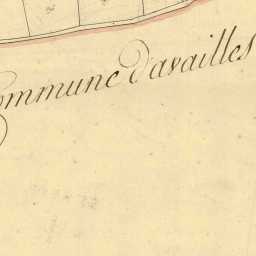 Commune d'availles